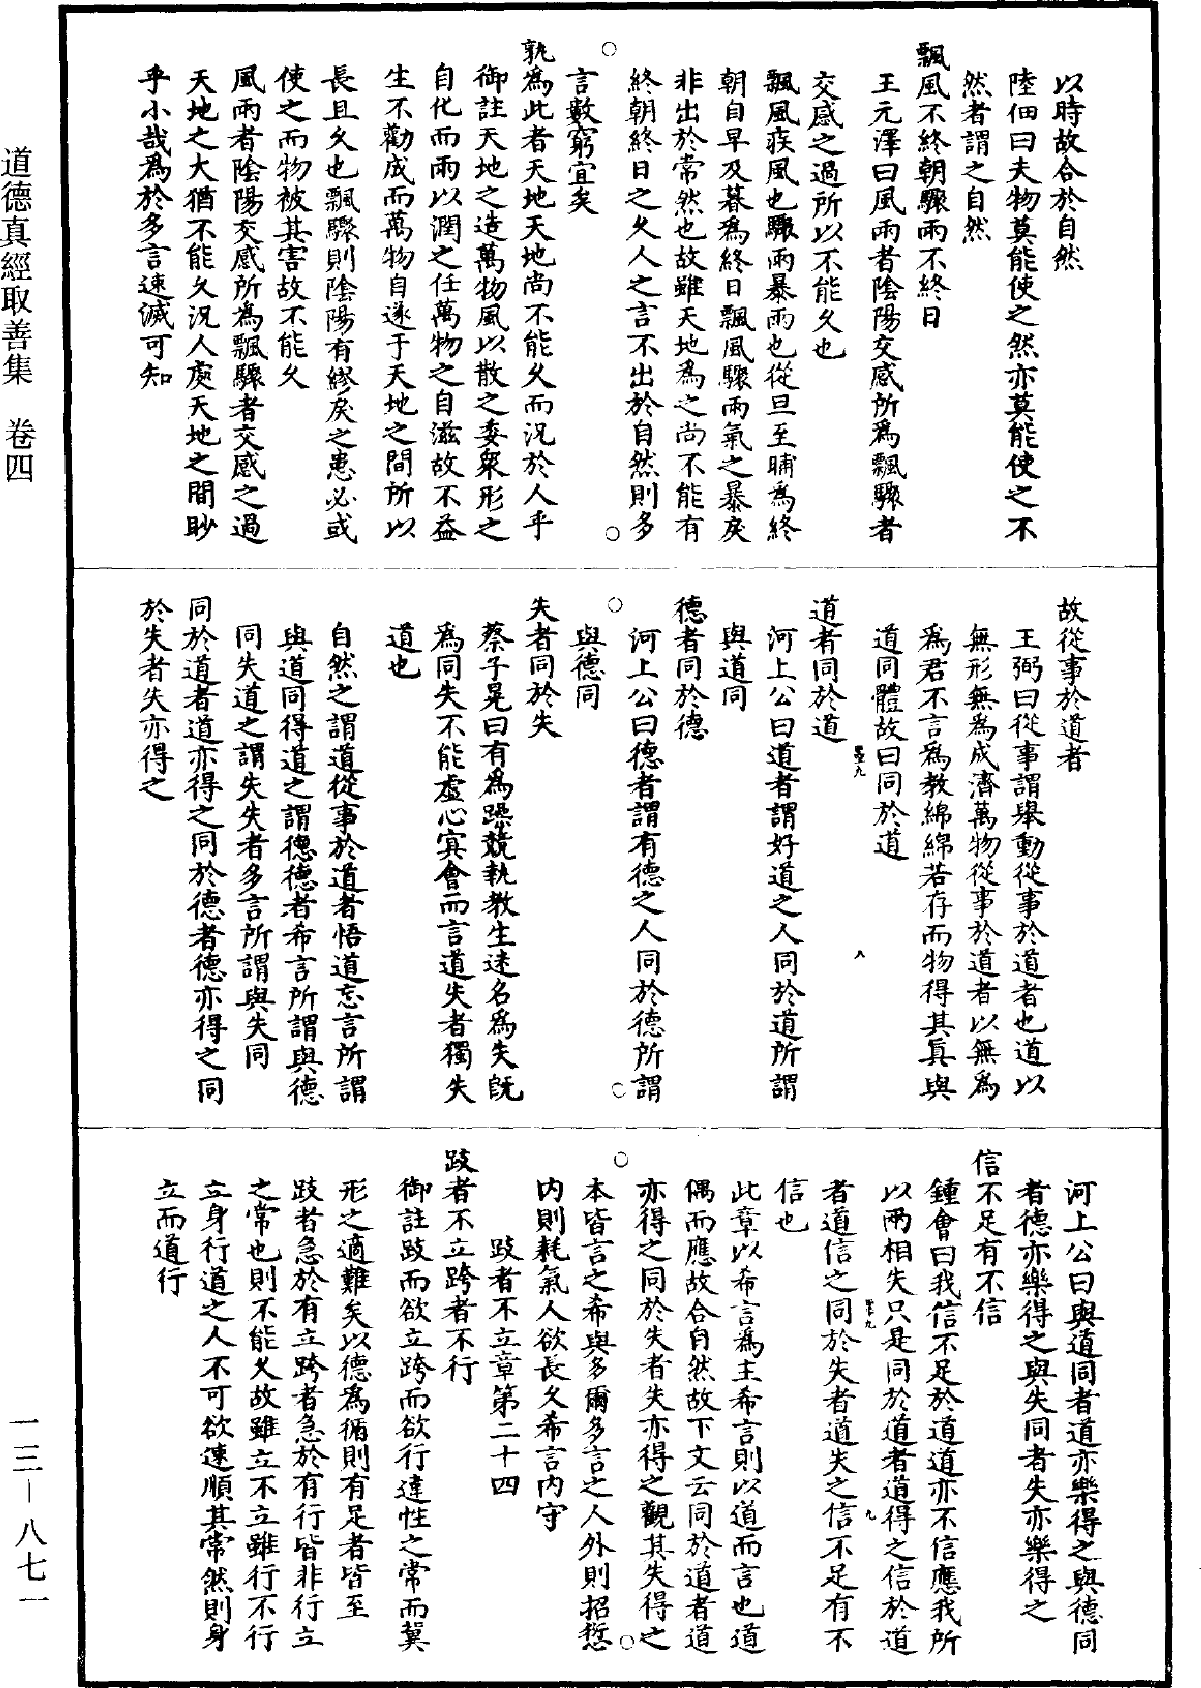 以時故合於自然
陸佃曰夫物莫能使之然亦莫能使之不
然者謂之自然
飄風不終朝驟雨不終日
王元澤曰風雨者陰陽交感所爲飄驟者
交感之過所以不能久也
飄風疾風也驟雨暴雨也從旦至晡爲終
朝自早及暮爲終日飄風驟雨氣之暴戾
非出於常然也故雖天地爲之尚不能有
終朝終日之久人之言不出於自然則多
言數窮宜矣
孰為此者天地天地尚不能久而況於人乎
御註天地之造萬物風以散之委衆形之
自化而雨以潤之任萬物之自滋故不益
生不勸成而萬物自遂于天地之間所以
長且久也飄驟則陰陽有繆戾之患必或
使之而物被其害故不能久
風雨者陰陽交感所爲飄驟者交感之過
天地之大猶不能久況人處天地之間眇
乎小哉爲於多言速滅可知
故從事於道者
王弼曰從事謂舉動從事於道者也道以
無形無為成濟萬物從事於道者以無為
爲君不言為教綿綿若存而物得其眞與
道同體故曰同於道
道者同於道
河上公曰道者謂好道之人同於道所謂
與道同
德者同於德
河上公曰德者謂有德之人同於德所謂
與德同
失者同於失
蔡子晃曰有爲躁競執教生迷名爲失旣
爲同失不能虛心㝠會而言道失者獨失
道也
自然之謂道從事於道者悟道忘言所謂
與道同得道之謂德德者希言所謂與德
同失道之謂失失者多言所謂與失同
同於道者道亦得之同於德者德亦得之同
於失者失亦得之
河上公曰與道同者道亦樂得之與德同
者德亦樂得之與失同者失亦樂得之
信不足有不信
鍾會曰我信不足於道道亦不信應我所
以兩相失只是同於道者道得之信於道
者道信之同於失者道失之信不足有不
信也
此章以希言為主希言則以道而言也道
偶而應故合自然故下文云同於道者道
亦得之同於失者失亦得之觀其失得之
本皆言之希與多爾多言之人外則招愆
內則耗氣人欲長久希言內守
跂者不立章第二十四
跂者不立跨者不行
御註跂而欲立跨而欲行違性之常而冀
形之適難矣以德為循則有足者皆至
跂者急於有立跨者急於有行皆非行立
之常也則不能久故雖立不立雖行不行
立身行道之人不可欲速順其常然則身
立而道行
道德真經取善集 卷四
一三—八七一
八
九